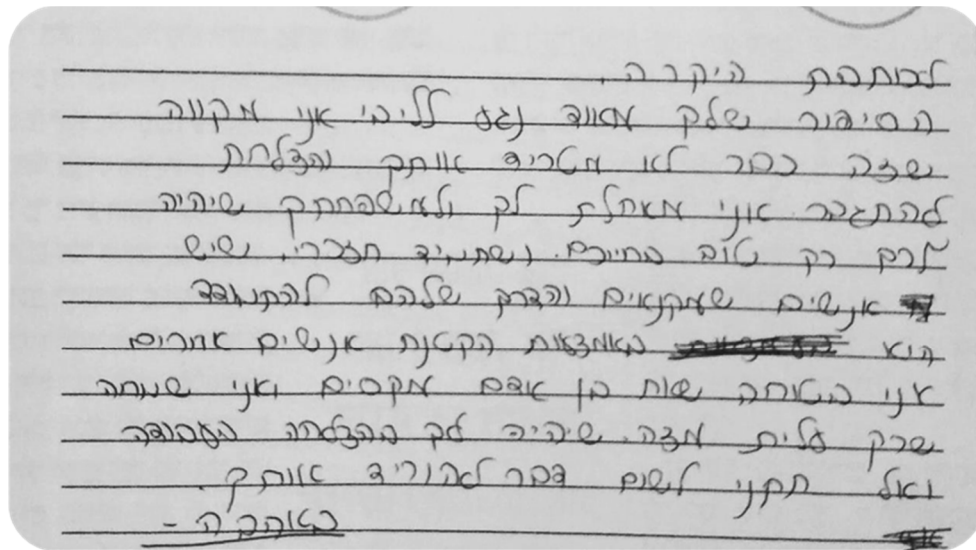 לכותבת היקרה
הסיפור שלך מאוד נגע לליבי אני מקווה
שזה כבר לא מטריד אותך והצלחת
להתגבר. אני מאחלת לך ולמשפחתך שיהיה
לכם רק טוב בחייכם. ושתמיד תזכרי, שיש
אנשים שמקנאים והדרך שלהם להתמודד
היא באמצעות הקטנת אנשים אחרים
אני בטוחה שאת בן אדם מקסים ואני שמחה
שרק עלית מזה. שיהיה לך בהצלחה בעבודה
ואל תתני לשום דבר להוריד אותך.
באהבה -